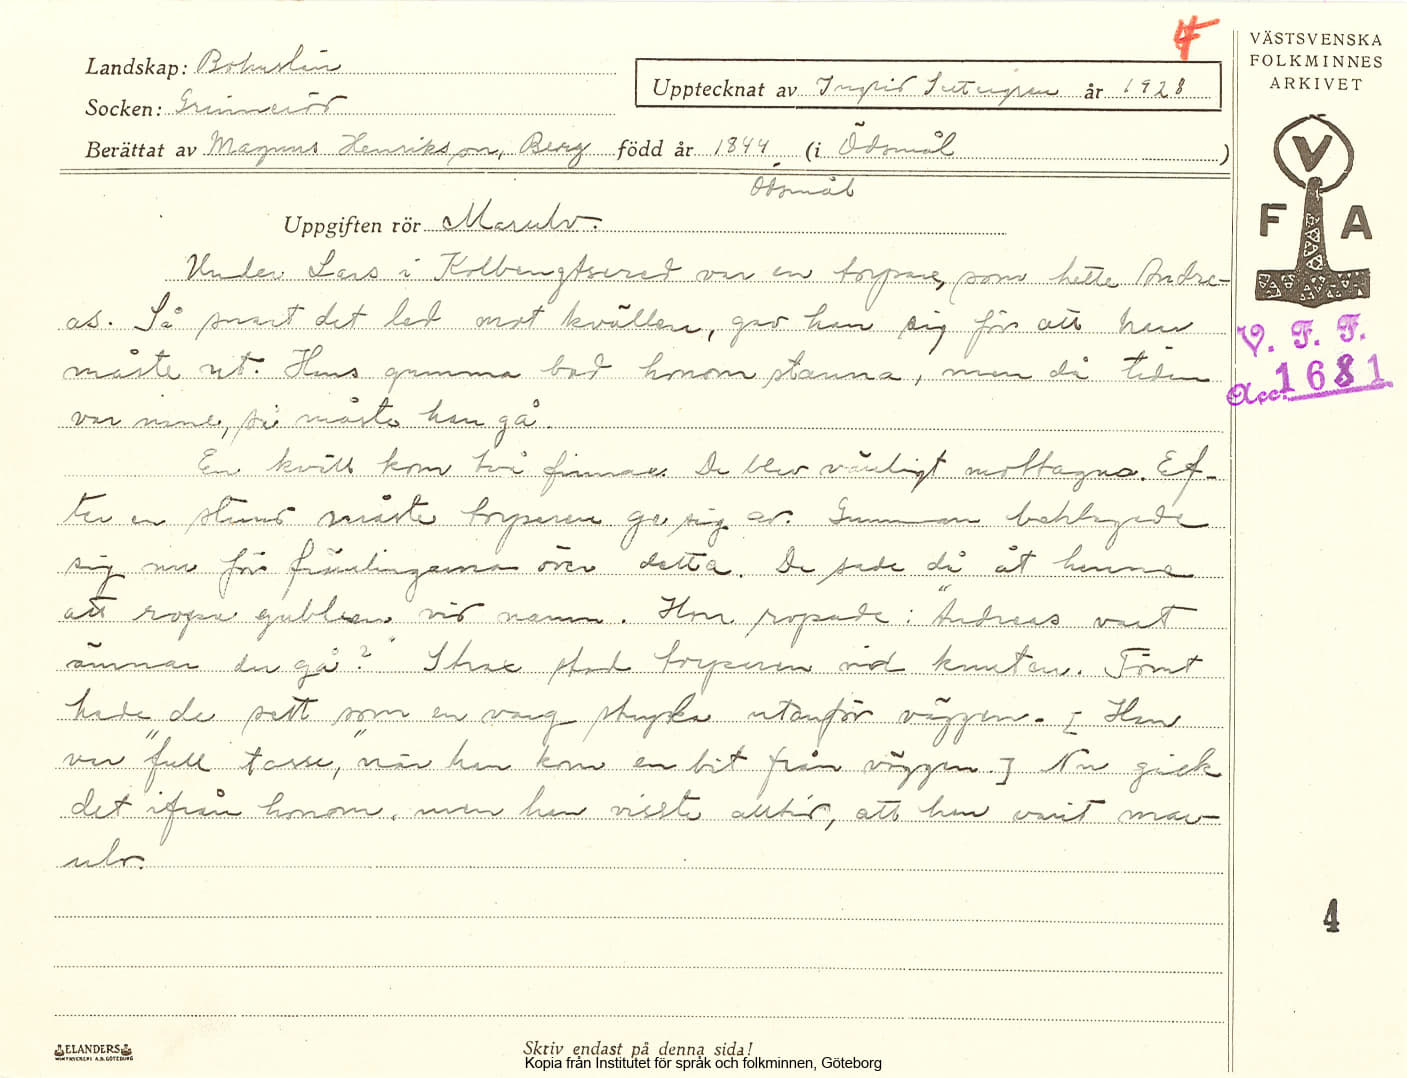 4
VÄSTSVENSKA
FOLKMINNES
ARKIVET
Landskap: Bohuslän
Socken: Grinneröd
Upptecknat av Ingrid år 1928
Berättat av Magnus Henrikson, Berg född år 1844 (i Ödsmål)
Ödsmål
V
F A
V. F. F.
Acc. 1681
Uppgiften rör Marulv.
Under Lars i Kolbengtsered var en torpare, som hette Andre-
as. Så snart det led mot kvällen, gav han sig för att han
måste ut. Hans gumma bad honom stanna, men då tiden
var inne, så måste han gå.
En kväll kom två finnar. De blev vänligt mottagna. Ef-
ter en stund måste torparen ge sig av. Gumman beklagade
sig nu för främlingarna över detta. De sade då åt henne
att ropa gubben vid namn. Hon ropade: "Andreas vart
ämnar du gå?" Strax stod torparen vid knuten. Förut
hade de sett som en varg stryka utanför väggen. [Han
var "full tasse," när han kom en bit från väggen.] Nu gick
det ifrån honom, men han visste alltid, att han varit mar-
ulv.
4
ELANDERS
Skriv endast på denna sida!
Kopia från Institutet för språk och folkminnen, Göteborg